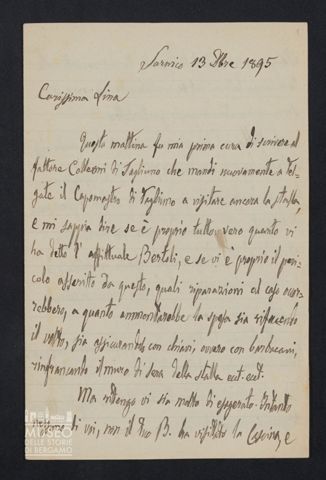 Sarnico 13 Xbre 1895
Carissima Lina
Questa mattina fu mia prima cura di scrivere al
fattore Colleoni di Tagliuno che mandi nuovamente a Tel-
gate il Capomastro di Tagliuno a visitare ancora la stalla,
e mi sappia dire se è proprio tutto vero quanto vi
ha detto l'affittuale Bertoli, e se vi è proprio il peri-
colo asserito da questo, quali riparazioni al caso occor-
rebbero, a quanto ammonterebbe la spesa sia rifacendo
il volto, sia assicurandolo con chiavi, ovvero con barbacani,
rinfrancando il muro di sera della stalla ect. ect.
Ma ritengo vi sia molto di esagerato. Intanto
di voi, non il B. ha visitato la Cascina, e
MUSEO
DELLE STORIE
DI BERGAMO